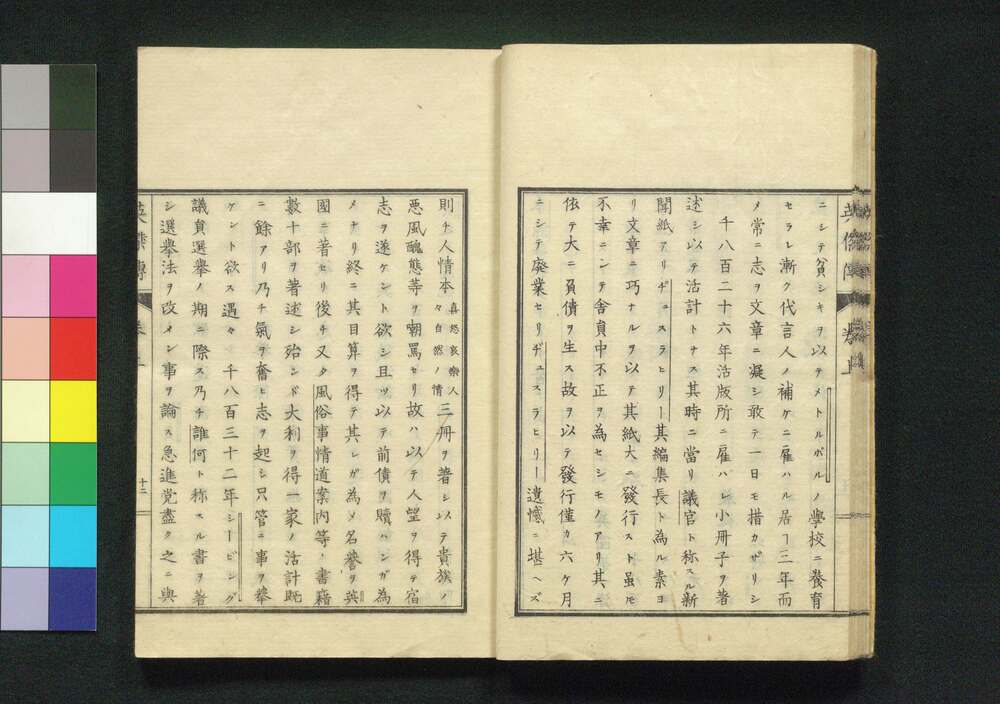 ニシテ貧シキヲ以テメトルボルノ學校ニ養育
セラレ漸ク代言人ノ補ケニ雇ハル居ー三年而
メ常ニ志ヲ文章ニ凝シ敢テ一日モ措カザリシ
千八百二十六年活版所ニ雇ハレ小冊子ヲ著
述シ以テ活計トナス其時ニ當リ議官ト称スル新
聞紙アリヂュスラヒリー其編集長ト為ル素ヨ
リ文章ニ巧ナルヲ以テ其紙大ニ發行スト雖モ
不幸ニシテ舎貟中不正ヲ為セシモノアリ其ニ
依テ大ニ負債ヲ生ス故ヲ以テ發行僅カ六ケ月
ニシテ廃業セリヂュスラヒリー遺憾ニ堪ヘズ
則チ人情本喜怒哀樂人々自然ノ情三冊ヲ著シ以テ貴族ノ
悪風醜態等ヲ嘲罵セリ故ハ以テ人望ヲ得テ宿
志ヲ遂ケント欲シ且ツ以テ前債ヲ贖ハンガ為
メナリ終ニ其目算ヲ得テ其レガ為メ名誉ヲ英
國ニ著セリ後チ又タ風俗事情道案内等ノ書籍
數十部ヲ著述シ殆ンド大利ヲ得一家ノ活計既
ニ餘アリ乃チ氣ヲ奮ヒ志ヲ起シ只管ニ事ヲ擧
ケント欲ス遇々千八百三十二年シービング
議貟選擧ノ期ニ際ス乃チ誰何ト称スル書ヲ著
シ選擧法ヲ改メン事ヲ論ス急進党盡ク之ニ與
十二